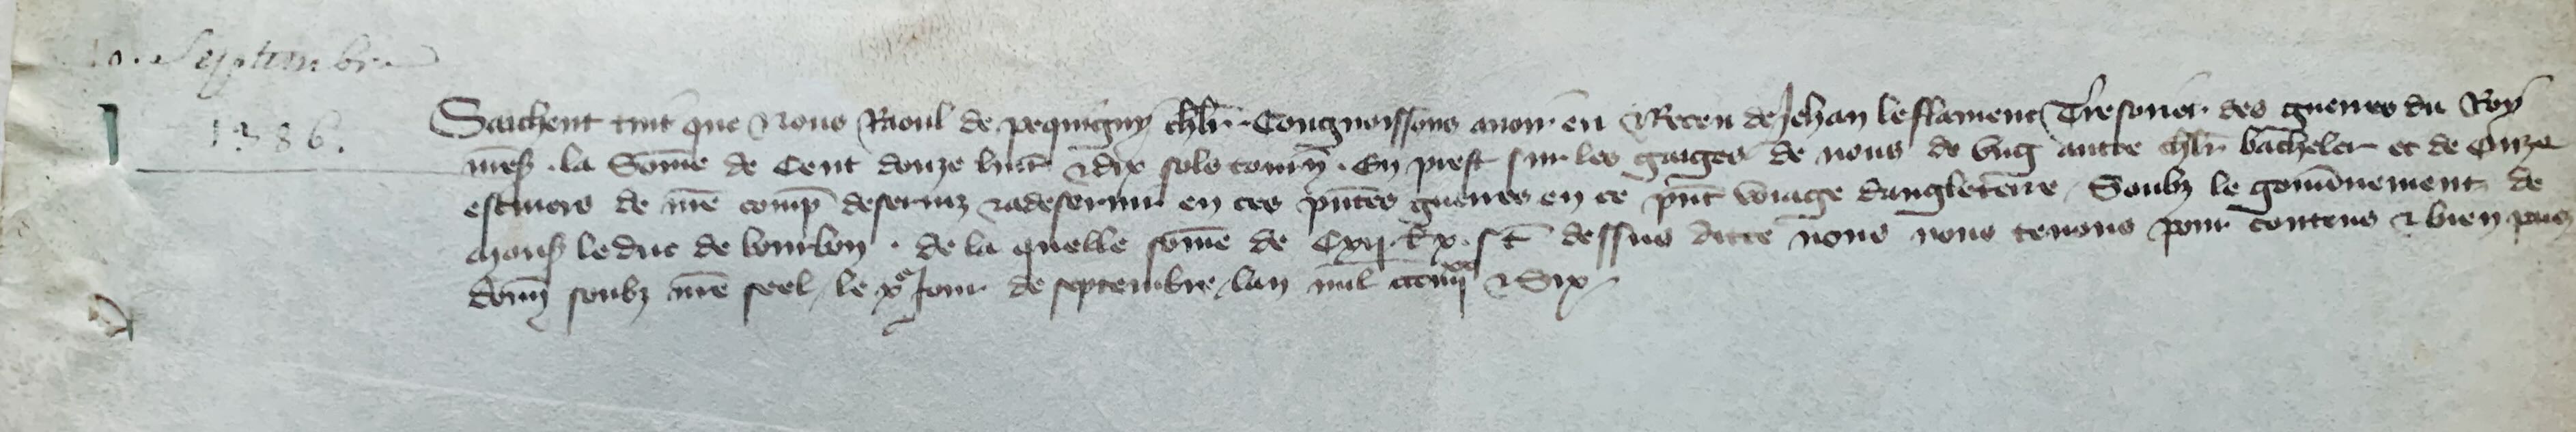 10. Septembre
1386.
Saichent tuit que Nous Raoul de pequigny chlr Congnoissons avoir eu & Receu de Jehan le flament Tresorier des guerres du Roy
nres la Some de Cent douze livr & dix solz tourn. En prest sur les gaiges de nous de ung autre chlr bacheler et de Onze
escuiers de nre comp deserviz & a deservir en ces pntes guerres en ce pnt voiage dangleterre Soubz le gouvnement de
Mons le duc de bourbon. de la quelle some de Cxij l x s t dessus ditte nous nous tenons pour contens & bien paiez
Donn soubz nre seel le xe Jour de septembre lan mil ccc iiijxx & Six